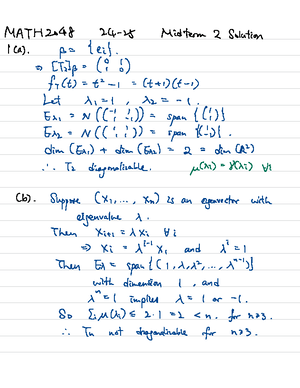 MATH2048 24-25 Midterm 2 Solution
1(a). β = {ei}.
⇒ [T2]β = (0 1
1 0)
fT(t) = t² - 1 = (t+1)(t-1)
Let λ1 = 1, λ2 = -1.
Eλ1 = N((-1 1
1 -1)) = span {(1
1)}
Eλ2 = N((1 1
1 1)) = span {(1
-1)}.
dim(Eλ1) + dim(Eλ2) = 2 = dim(R²)
∴ T2 diagonalisable. μ(λi) = γ(λi) ∀i
(b). Suppose (x1, ..., xn) is an eigenvector with
eigenvalue λ.
Then xi+1 = λxi ∀i
⇒ xi = λ^i-1 x1 and λ^n = 1
Then Eλ = span{(1, λ, λ², ..., λ^n-1)}
with dimension 1, and
λ^n = 1 implies λ = 1 or -1.
So Σi μ(λi) ≤ 2·1 = 2 < n. for n≥3.
∴ Tn not diagonalisable for n≥3.